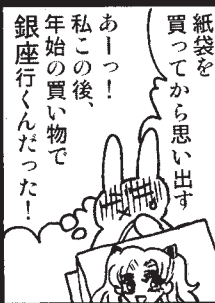 紙袋を
買ってから思い出す
あーっ！
私この後、
年始の買い物で
銀座行くんだった！